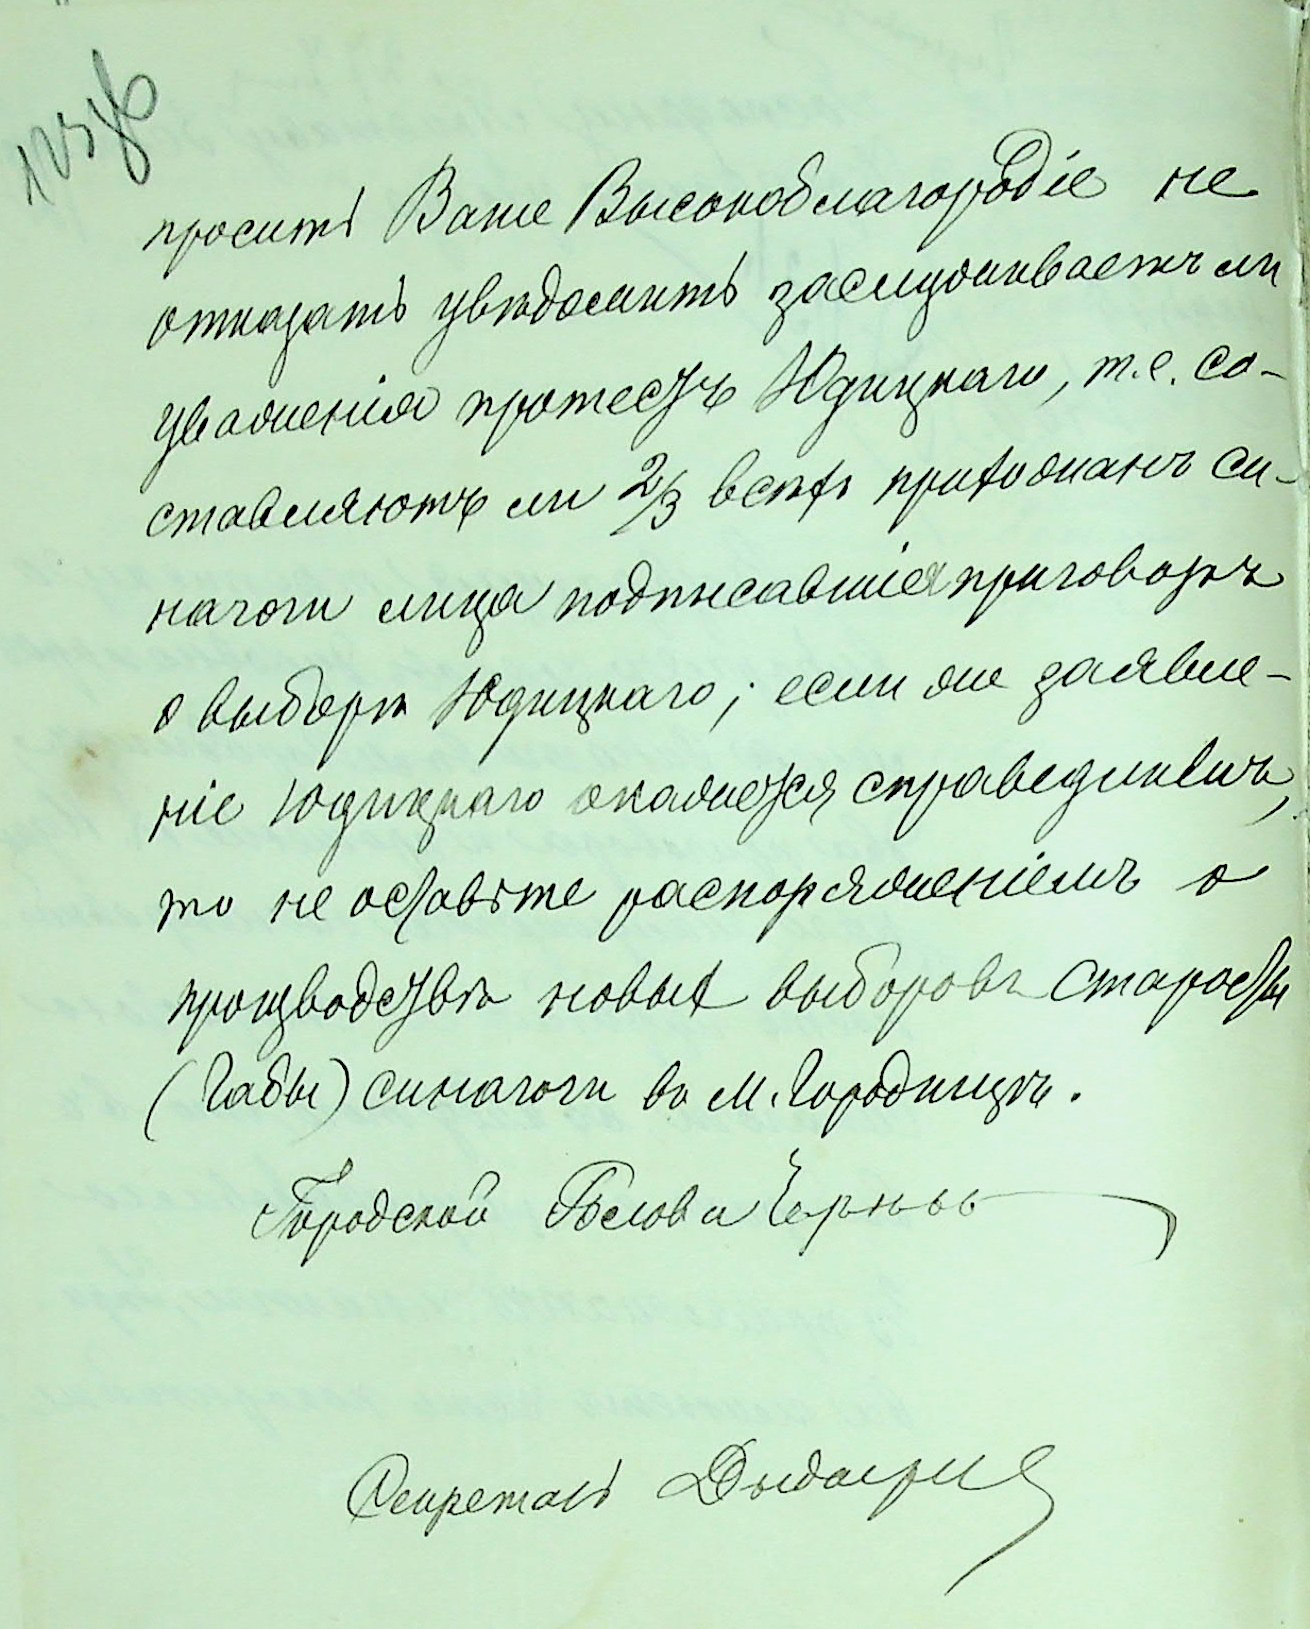 просить Ваше Высокоблагородіе не
отказать увѣдомить заслуживаетъ ли
уваженія протестъ Юдицкаго, т.е. со-
ставляютъ ли 2/3 всѣхъ прихожанъ си-
нагоги лица подписавшія приговоръ
о выборѣ Юдицкаго; если же заявле-
ніе Юдицкаго окажется справедливымъ,
то не оставьте распоряженіемъ о
производствѣ новыхъ выборовъ старосты
(Габы) синагоги въ м. Городищѣ.
Городской Голова
Секретарь